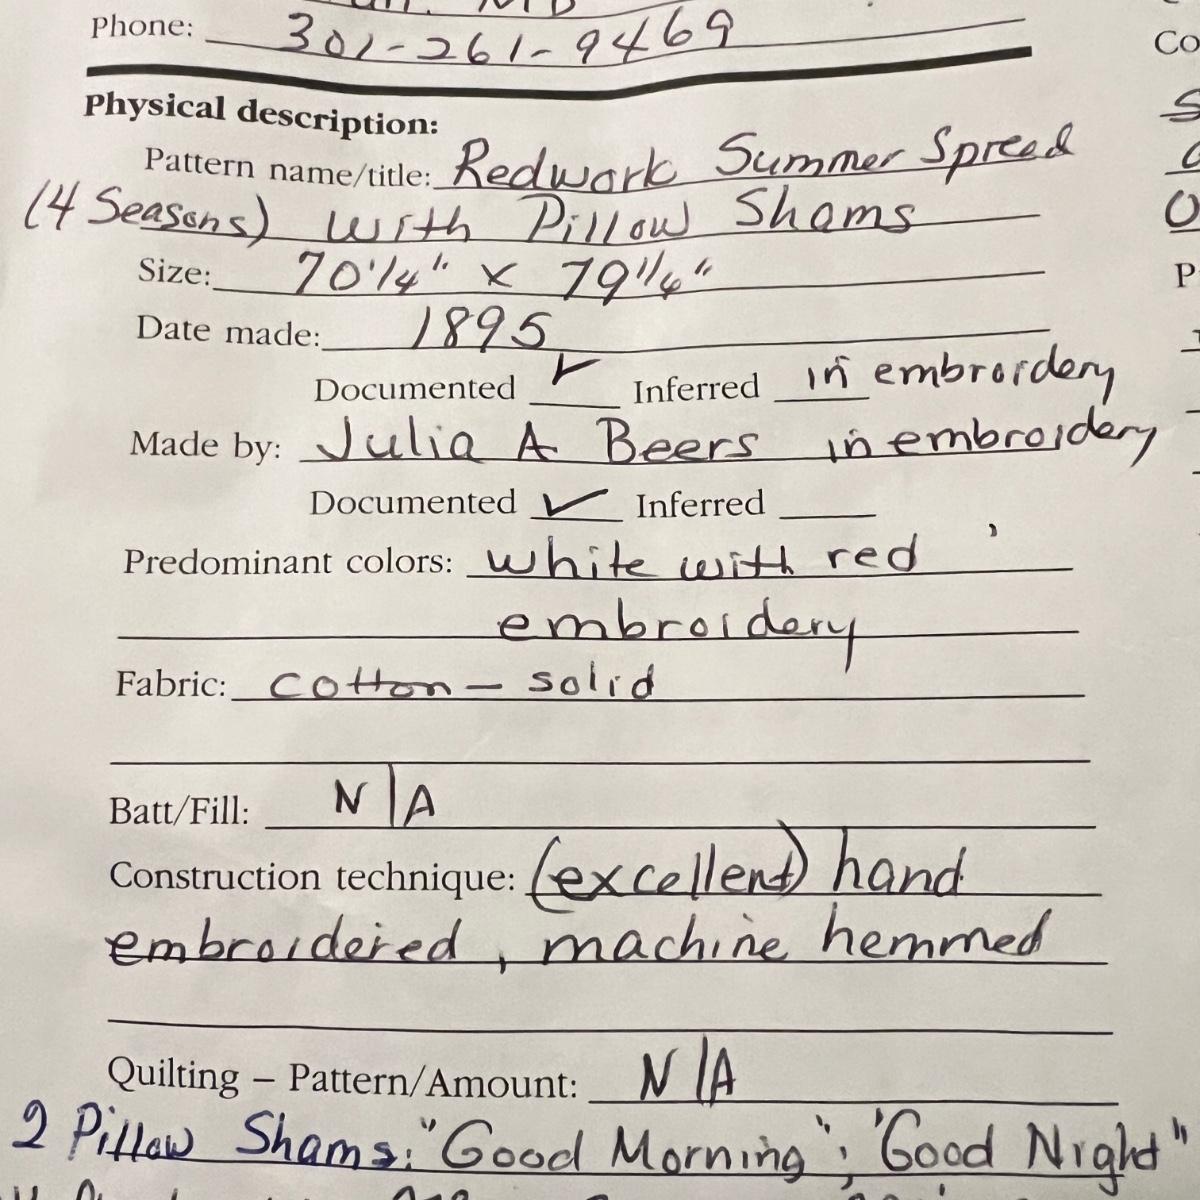 MD
Phone: 301-261-9469
Physical description:
Pattern name/title: Redwork Summer Spread
(4 Seasons) with Pillow Shams
Size: 70 1/4" x 79 1/4"
Date made: 1895
Documented ✓ Inferred in embroidery
Made by: Julia A Beers in embroidery
Documented ✓ Inferred
Predominant colors: white with red
embroidery
Fabric: cotton – solid
Batt/Fill: N/A
Construction technique: (excellent) hand
embroidered, machine hemmed
Quilting – Pattern/Amount: N/A
2 Pillow Shams: "Good Morning"; "Good Night"
Co
P